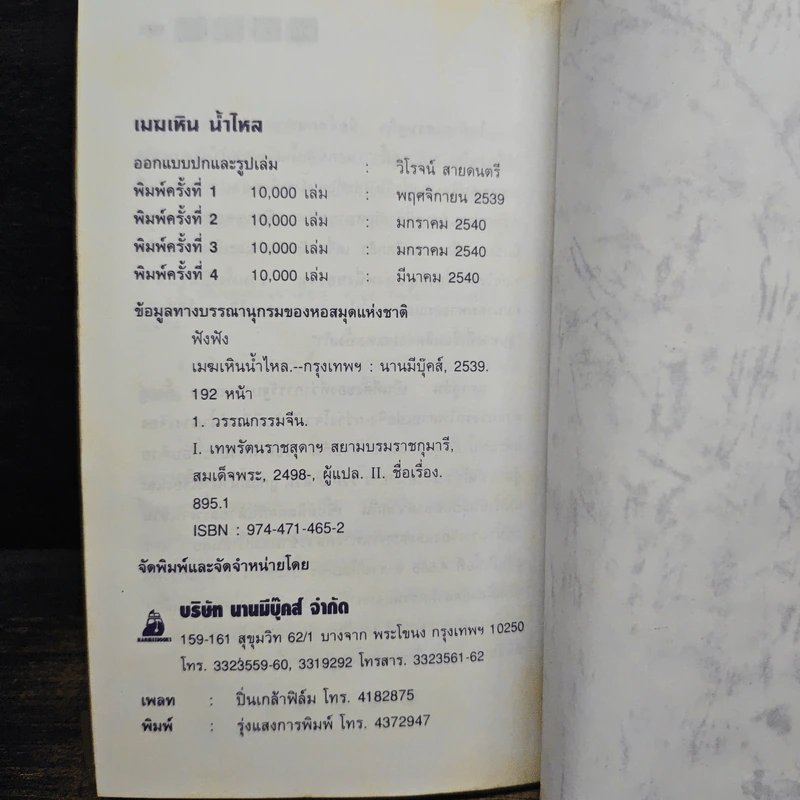 เมฆเหิน น้ำไหล
ออกแบบปกและรูปเล่ม : วิโรจน์ สายดนตรี
พิมพ์ครั้งที่ 1 10,000 เล่ม : พฤศจิกายน 2539
พิมพ์ครั้งที่ 2 10,000 เล่ม : มกราคม 2540
พิมพ์ครั้งที่ 3 10,000 เล่ม : มกราคม 2540
พิมพ์ครั้งที่ 4 10,000 เล่ม : มีนาคม 2540
ข้อมูลทางบรรณานุกรมของหอสมุดแห่งชาติ
ฟังฟัง
เมฆเหินน้ำไหล.--กรุงเทพฯ : นานมีบุ๊คส์, 2539.
192 หน้า
1. วรรณกรรมจีน.
I. เทพรัตนราชสุดาฯ สยามบรมราชกุมารี,
สมเด็จพระ, 2498-, ผู้แปล. II. ชื่อเรื่อง.
895.1
ISBN : 974-471-465-2
จัดพิมพ์และจัดจำหน่ายโดย
บริษัท นานมีบุ๊คส์ จำกัด
NANMEEBOOKS
159-161 สุขุมวิท 62/1 บางจาก พระโขนง กรุงเทพฯ 10250
โทร. 3323559-60, 3319292 โทรสาร. 3323561-62
เพลท : ปิ่นเกล้าฟิล์ม โทร. 4182875
พิมพ์ : รุ่งแสงการพิมพ์ โทร. 4372947